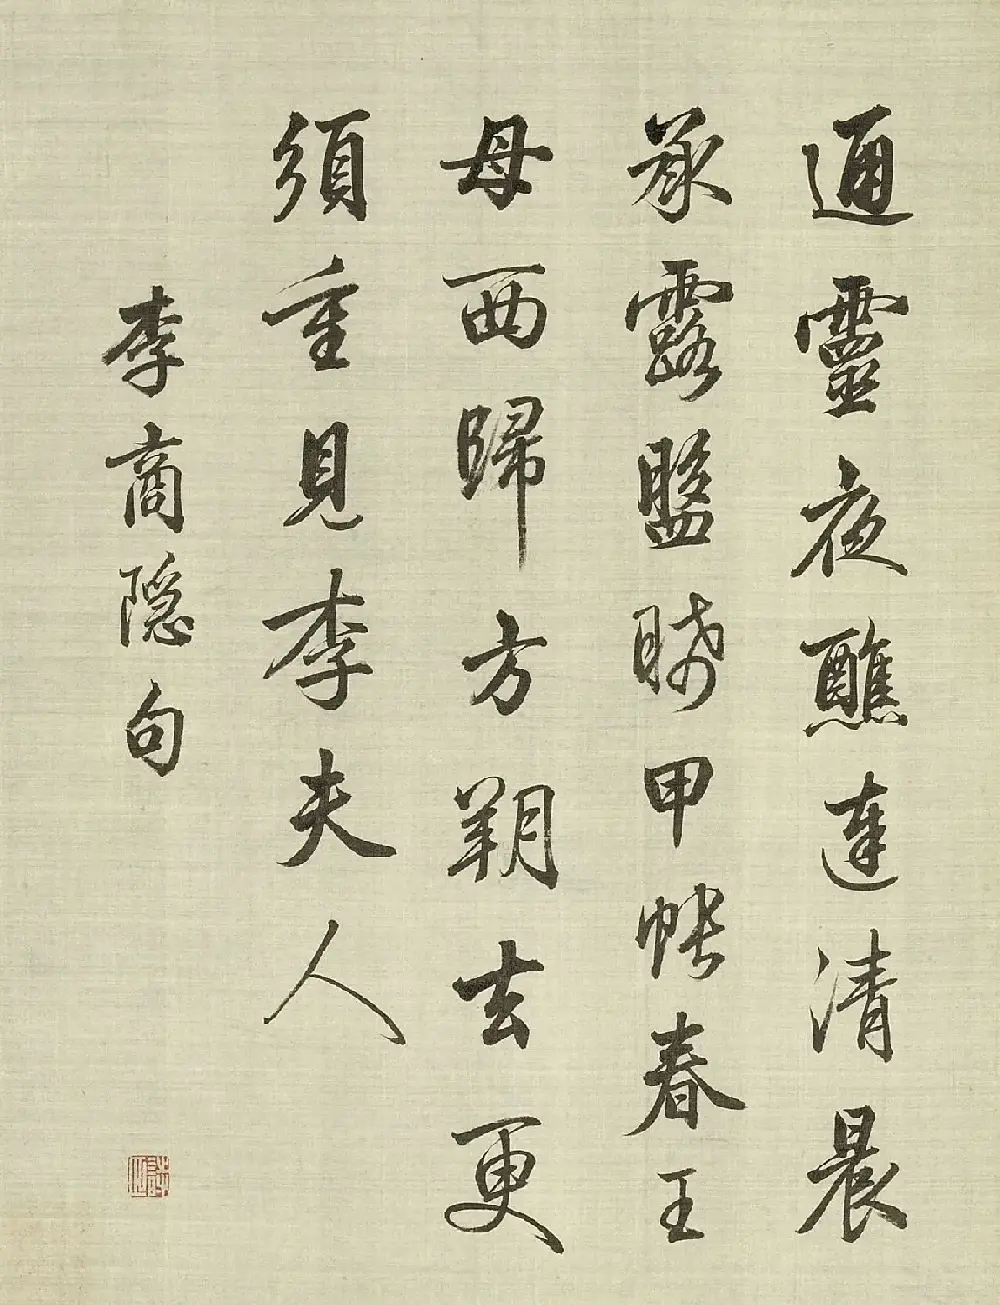 通靈夜醮達清晨
承露盤晞甲帳春王
母西歸方朔去更
須重見李夫人
李商隱句